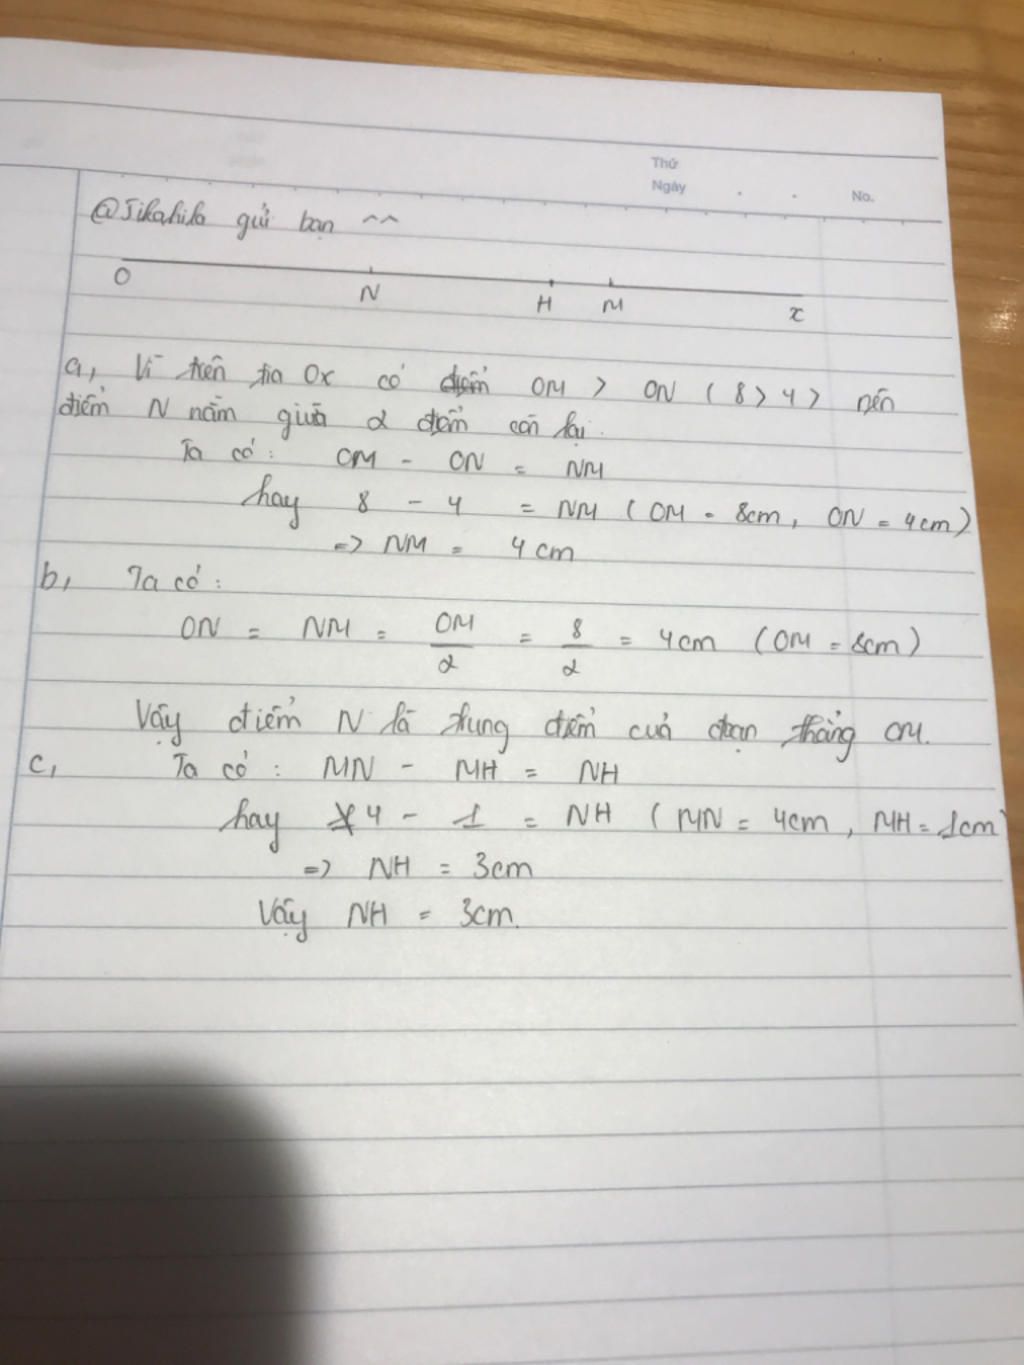 Thứ
Ngày . . No.
@Jikahika gửi bạn ^^
O N H M x
a, Vì trên tia Ox có điểm OM > ON ( 8 > 4 > nên
điểm N nằm giữa 2 điểm còn lại.
Ta có: OM - ON = NM
hay 8 - 4 = NM ( OM = 8cm, ON = 4cm )
=> NM = 4 cm
b, Ta có :
ON = NM = OM/2 = 8/2 = 4cm ( OM = 8cm )
Vậy điểm N là trung điểm của đoạn thẳng OM.
c, Ta có : MN - MH = NH
hay 4 - 1 = NH ( MN = 4cm, MH = 1cm )
=> NH = 3cm
Vậy NH = 3cm.